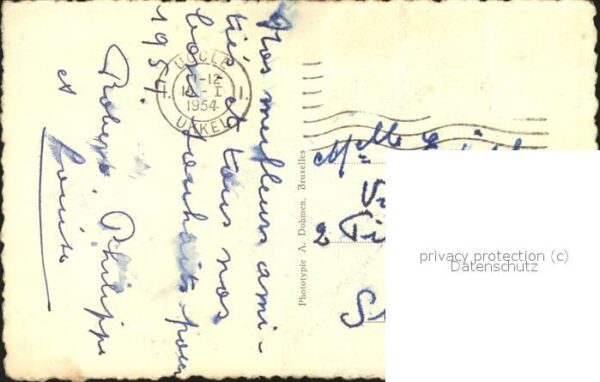 Nos meilleurs ami-
tiés et tous nos
bons souhaits pour
1954.
Robert Philippe
et Louise
UCCLE
-12
1954
UKKEL
Phototypie A. Dohmen, Bruxelles
Mlle
2
privacy protection (c)
Datenschutz